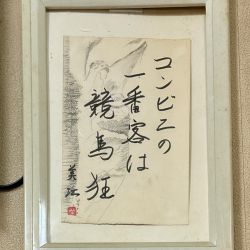 コンビニの
一番客は
競馬狂
美江